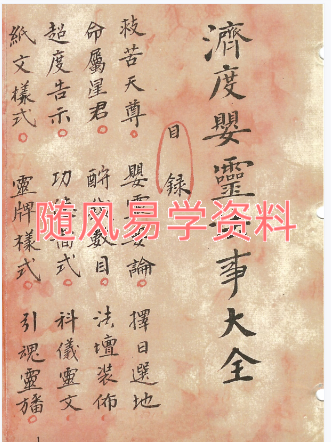 濟度嬰靈事大全
目録
救苦天尊。嬰靈論。擇日選地
命屬星君。酧數目。法壇裝佈
超度告示。功式。科儀靈文
紙文樣式。靈牌樣式。引魂靈旛
随风易学资料